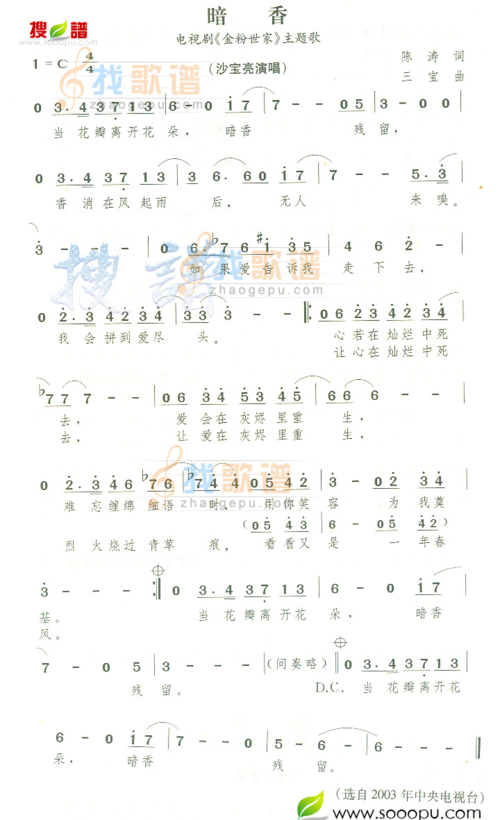 搜谱
暗 香
电视剧《金粉世家》主题歌
1=C 4/4
(沙宝亮演唱)
陈 涛 词
三 宝 曲
找歌谱
zhaogepu.com
0 3·4 3 7 1 3 | 6 - 0 1 7 | 7 - 0 5 | 3 - 0 0 |
当 花 瓣 离 开 花 朵, 暗 香 残 留,
0 3·4 3 7 1 3 | 3 6· 6 0 1 7 | 7 - - 0 5· | 3 -
香 消 在 风 起 雨 后, 无 人 来 嗅。
3 - - - | 0 6· ♭7 6 #1 3 5 | 4 6 2 - |
如 果 爱 告 诉 我 走 下 去,
搜谱
找歌谱
zhaogepu.com
0 2·3 4 2 3 4 | 3 3 3 - - :| 0 6 2 3 4 2 3 4 |
我 会 拼 到 爱 尽 头。 心 若 在 灿 烂 中 死
让 心 在 灿 烂 中 死
♭7 7 7 - - | 0 6 3 4 5 3 5 4 | 6 6 6 - - |
去, 爱 会 在 灰 烬 里 重 生,
去, 让 爱 在 灰 烬 里 重 生,
找歌谱
0 2·3 4 6 | ♭7 6 ♭7 4 4 0 5 4 2 | 3 - 0 2 3 4 |
zhaogepu.com
难 忘 缠 绵 细 语 时, 用 你 笑 容 为 我 奠
(0 5 4 3 | 6 - 0 5 4 2)
烈 火 烧 过 青 草 痕, 看 看 又 是 一 年 春
3 - - - :| 0 3·4 3 7 1 3 | 6 - 0 1 7 |
基。 当 花 瓣 离 开 花 朵, 暗 香
风。
7 - 0 5 | 3 - - - | (间奏略) | 0 3·4 3 7 1 3 |
残 留。 D.C. 当 花 瓣 离 开 花
6 - 0 1 7 | 7 - - 0 | 0 0 0 5 | 3 - - - |
朵, 暗 香 残 留。
(选自 2003 年中央电视台)
www.sooopu.com